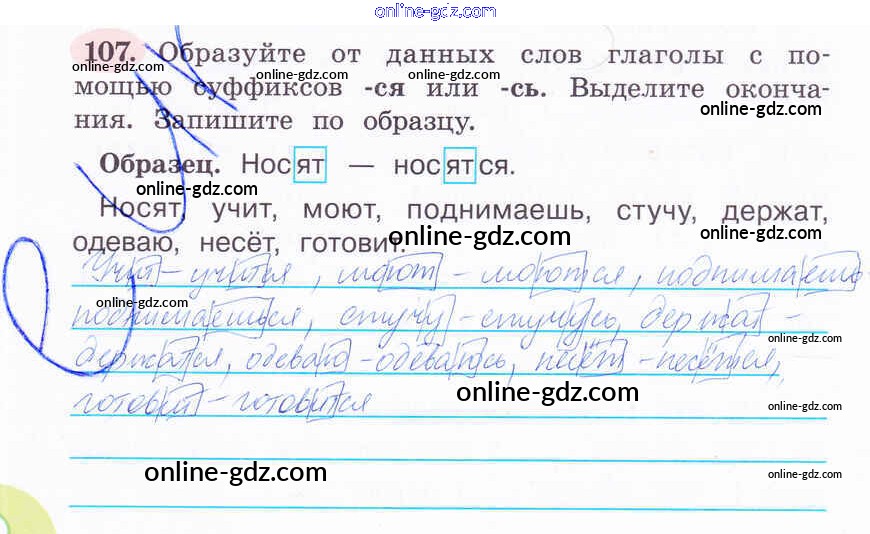 online-gdz.com
107. Образуйте от данных слов глаголы с по-
online-gdz.com online-gdz.com online-gdz.com online-gdz.com
мощью суффиксов -ся или -сь. Выделите оконча-
online-gdz.com
ния. Запишите по образцу.
Образец. Носят — носятся.
online-gdz.com
Носят, учит, моют, поднимаешь, стучу, держат,
одеваю, несёт, готовит.
online-gdz.com online-gdz.com
Учит - учится, моют - моются, поднимаешь -
online-gdz.com
поднимаешься, стучу - стучусь, держат -
online-gdz.com
держатся, одеваю - одеваюсь, несёт - несётся,
online-gdz.com
готовит - готовится
online-gdz.com
online-gdz.com online-gdz.com
online-gdz.com